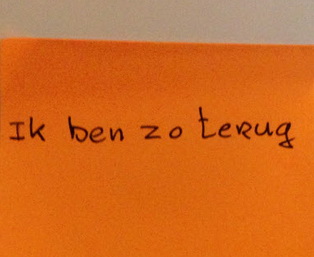 Ik ben zo terug